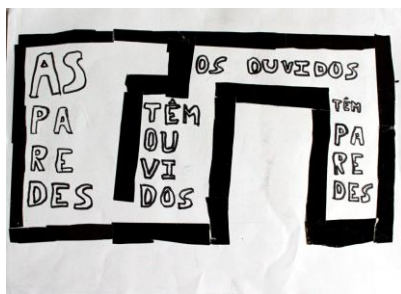 AS
PA
RE
DES
TÊM
OU
VI
DOS
OS OUVIDOS
TÊM
PA
RE
DES